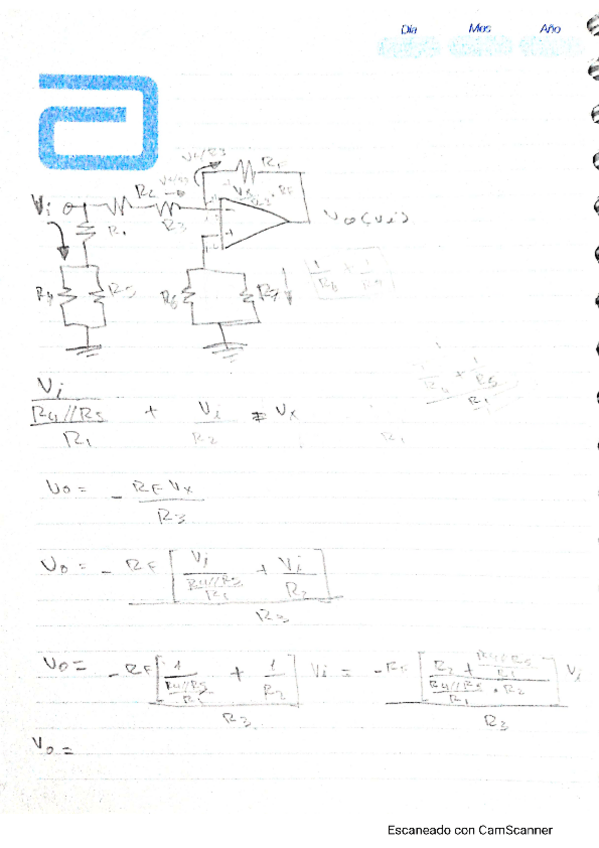 Día Mes Año
Vx/R3 RF
Vi R2 Vx/R3 Vx/R3 · RF
R1 R3 Vo(Vi)
R4 R5 R6 R7 1/R6 + 1/R7
Vi/((R4//R5)/R1) + Vi/R2 = Vx
R1
Vo = - RF Vx/R3
Vo = - RF [Vi/((R4//R5)/R1) + Vi/R2]/R3
Vo = -RF [1/((R4//R5)/R1) + 1/R2]/R3 Vi = -RF [(R2 + (R4//R5)/R1)/((R4//R5)/R1 · R2)]/R3 Vi
Vo =
Escaneado con CamScanner